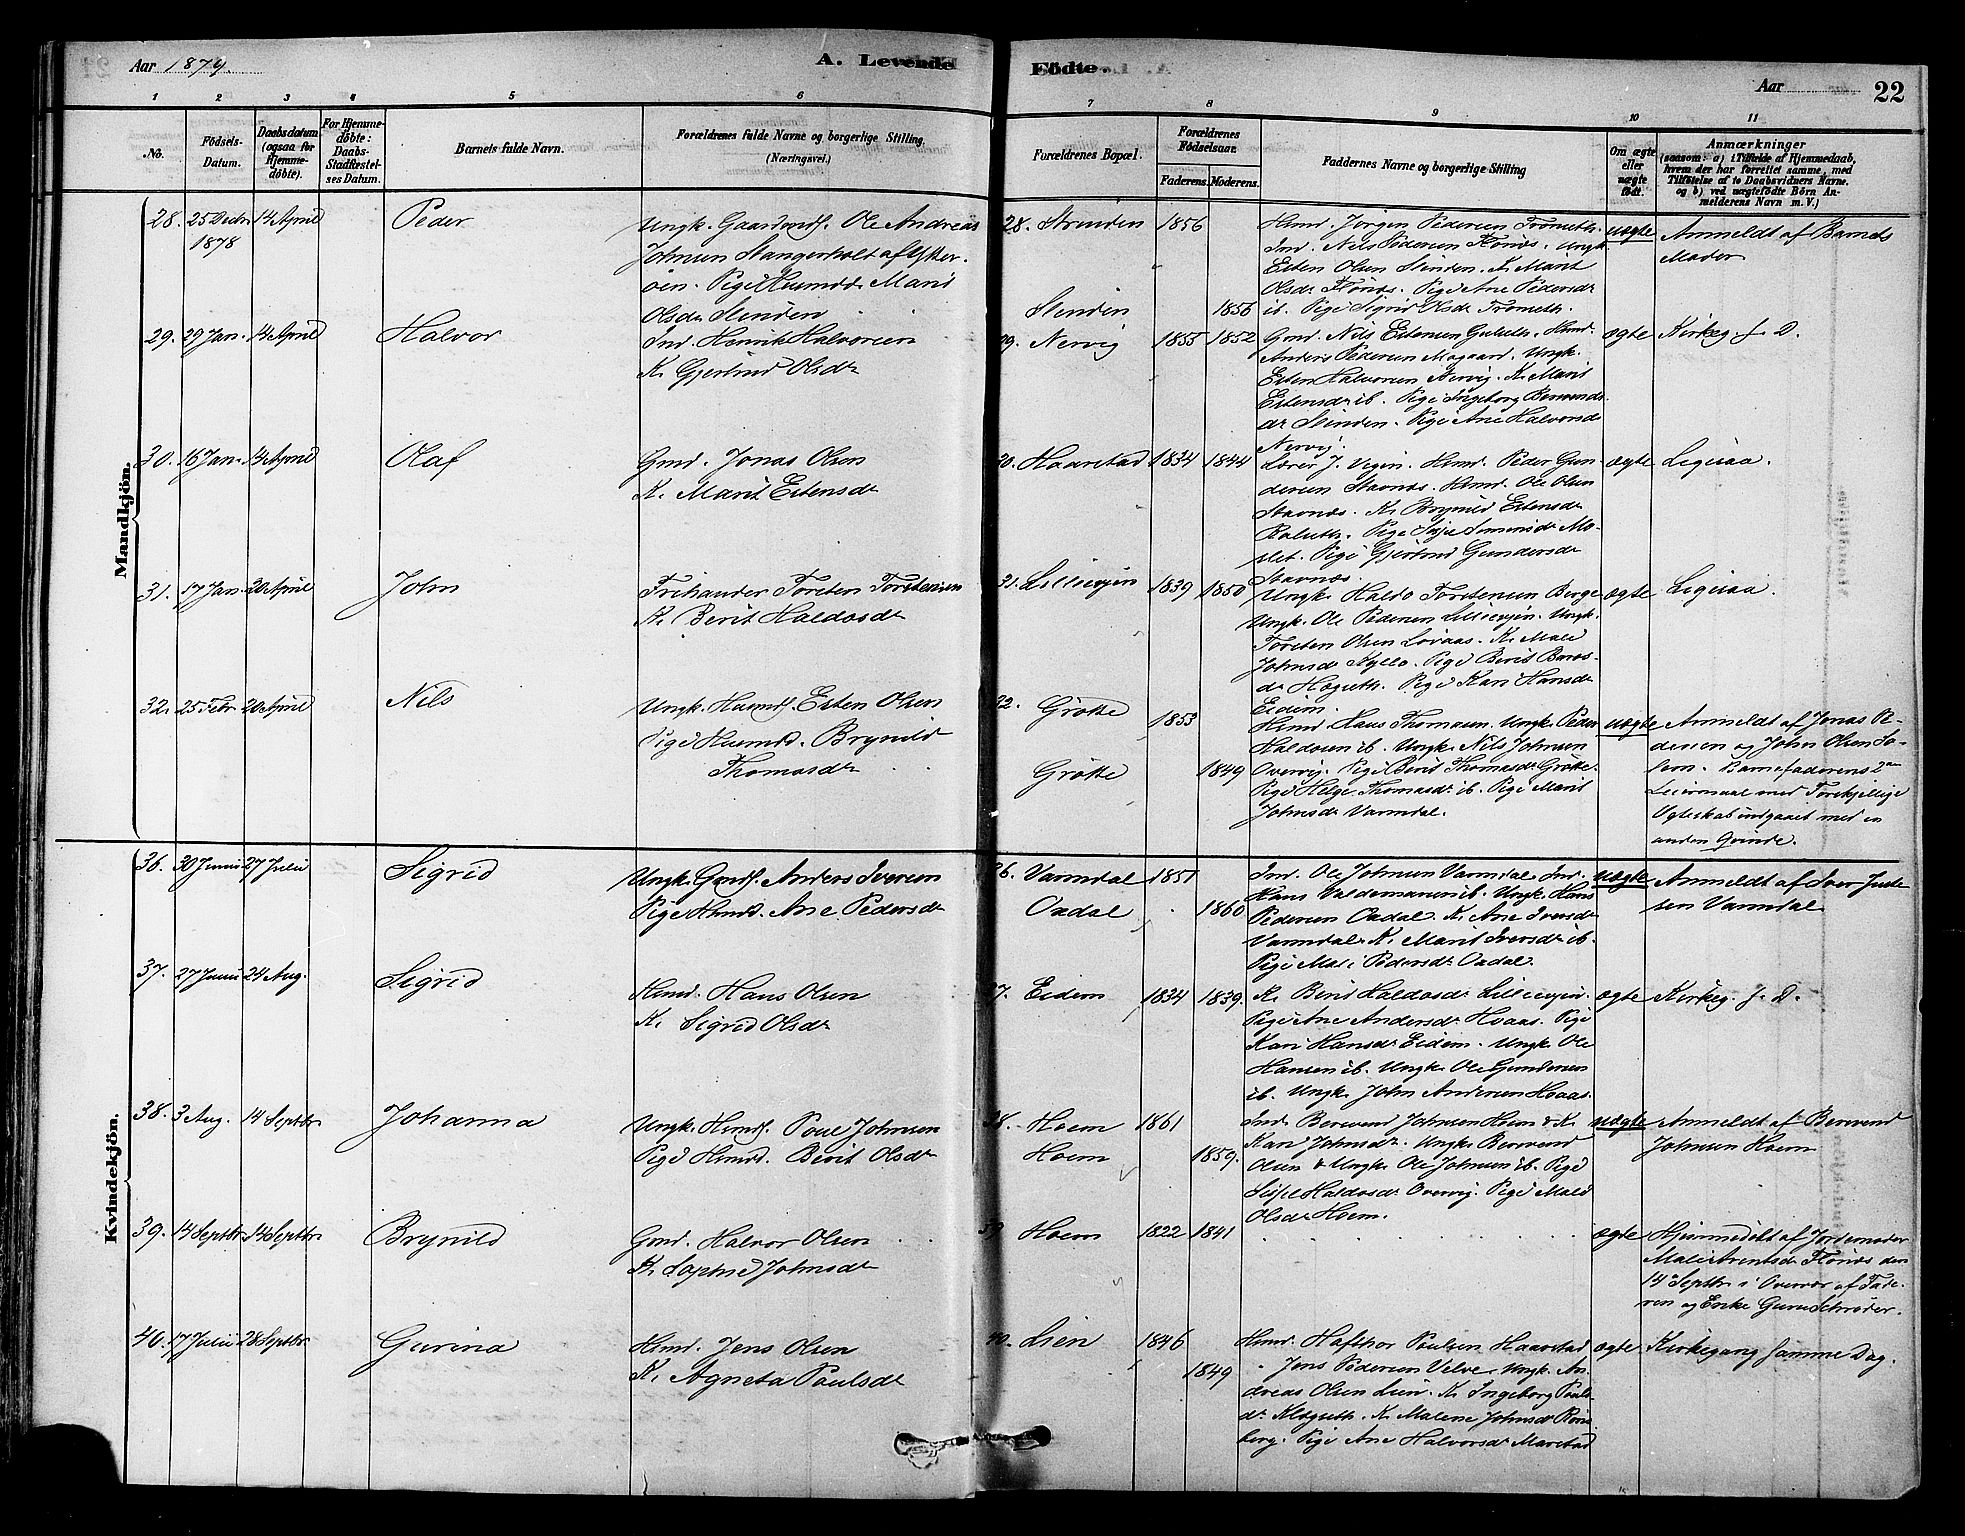 Aar 1879.
A. Levende Födte.
Aar
22
1 2 3 4 5 6 7 8 9 10 11
No.
Födsels-
Datum.
Daabsdatum
(ogsaa for
Hjemme-
döbte).
For Hjemme-
döbte:
Daabs-
Stadfæstel-
ses Datum.
Barnets fulde Navn.
Forældrenes fulde Navne og borgerlige Stilling.
(Næringsvei.)
Forældrenes Bopæl.
Forældrenes
Födselsaar.
Faderens. Moderens.
Faddernes Navne og borgerlige Stilling
Om ægte
eller
uægte
födt.
Anmærkninger
(saasom: a) i Tilfælde af Hjemmedaab,
hvem der har forrettet samme, med
Tilföielse af to Daabsvidners Navne,
og b) ved uægtefödte Börn An-
melderens Navn m. V.)
Mandkjön.
28. 25 Decbr 14 April
1878
Peder
Ungk. Gaardmds. Ole Andreas
Johnsen Stangerholt af Ytter-
öen. Pige Huusmdd. Marit
Olsdr Slinden
28. Strinden 1856
Slinden 1856
Husmd. Jörgen Pedersen Trömeth.
Ind. Nils Pedersen Flönæs. Ungk
Esten Olsen Slinden. K. Marit
Olsdr Flönæs. Pige Ane Pedersdr
ib. Pige Sigrid Olsdr Trömeth.
uægte
Anmeldt af Barnets
Moder
29. 29 Jan. 14 April
Halvor
Ind. Henrik Halvorsen
K. Gjertrud Olsdr
29. Nervig 1855 1852
Gmd. Nils Estensen Gulseth. Husmd.
Anders Pedersen Mogaard. Ungk.
Esten Halvorsen Nervig. K. Marit
Estensdr ib. Pige Ingeborg Bersvends
dr Slinden. Pige Ane Halvorsdr
Nervig.
ægte
Kirkeg. s. D.
30. 16 Jan. 14 April
Olaf
Gmd. Jonas Olsen
K. Marit Estensdr
30. Haarstad 1834 1844
Lærer J. Vigen. Husmd. Peder Gun-
dersen Stavnæs. Husmd. Ole Olsen
Stavnæs. K. Brynild Estensdr
Pige Gjertrud Gundersdr
Stavnæs.
ægte
Ligesaa.
31. 17 Jan. 20 April
John
Frihandler Torsten Torstensen
K. Berit Haldosdr
31. Lillievjen 1839 1850
Ungk. Haldo Torstensen Berge
Ungk. Ole Pedersen Lillievjen. Ungk.
Torsten Olsen Lövaas. K. Mali
Johnsdr Kyllo. Pige Berit Baros-
dr Hogseth. Pige Kari Hansdr
Eidem.
ægte
Ligesaa.
32. 25 Febr. 20 April
Nils
Ungk. Husmds. Esten Olsen
Pige Husmdd. Brynild
Thomasdr
32. Grötte 1853
Grötte 1849
Husmd. Hans Thomasen. Ungk. Peder
Haldosen ib. Ungk. Nils Johnsen
Overvig. Pige Berit Thomasdr Grötte.
Pige Helge Thomasdr ib. Pige Marit
Johnsdr Varmdal.
uægte
Anmeldt af Jonas Pe-
dersen og John Olsen So-
lem. Barnefaderens 2det
Leiermaal med forskjellige
Ægteskab indgaaet med en
anden Qvinde.
Kvindekjön.
36. 30 Juni 27 Juli
Sigrid
Ungk. Gmds. Anders Iversen
Pige Husmdd. Ane Pedersdr
36. Varmdal 1851
Oxdal 1860
Ind. Ole Johnsen Varmdal. Ind.
Hans Valdemarsen ib. Ungk. Hans
Pedersen Oxdal. K. Ane Iversdr
Varmdal. K. Marit Iversdr ib.
Pige Mali Pedersdr Oxdal.
uægte
Anmeldt af Iver Juste
sen Varmdal
37. 27 Juni 24 Aug.
Sigrid
Husmd. Hans Olsen
K. Sigrid Olsdr
37. Eidem 1834 1839.
K. Berit Haldosdr Lillievjen.
Pige Ane Andersdr Hoaas. Pige
Kari Hansdr Eidem. Ungk. Ole
Hansen ib. Ungk. Ole Gundersen
ib. Ungk. John Andersen Hoaas.
ægte
Kirkeg. s. D.
38. 3 Aug. 14 Septbr
Johanna
Ungk. Husmds. Poul Johnsen
Pige Husmdd. Berit Olsdr
38. Hoem 1861
Hoem 1859.
Ind. Bersvend Johnsen Hoem & K.
Kari Johnsdr. Ungk. Bersvend
Olsen & Ungk. Ole Johnsen ib. Pige
Sissel Haldosdr Overvig. Pige Mali
Olsdr Hoem.
uægte
Anmeldt af Bersvend
Johnsen Hoem
39. 14 Septbr. 14 Septbr
Brynild
Gmd. Halvor Olsen
K. Sophie Johnsdr
39 Hoem 1822 1841
ægte
Hjemmedöbt af Jordemoder
Mali Arentsdr Flönæs den
14 Septbr i Overvær af Fade-
ren og Enke Guru Schröder.
40. 17 Juli 28 Septbr.
Gurina
Husmd. Jens Olsen
K. Agneta Paulsdr
40. Lien 1846
1849
Husmd. Hafthor Paulsen Haarstad
" Jens Pedersen Velve. Ungk. An-
dreas Olsen Lien. K. Ingeborg Pauls
dr Klegseth. K. Malene Johnsdr Röns
berg. Pige Ane Halvorsdr Marstad
ægte
Kirkegang samme Dag.